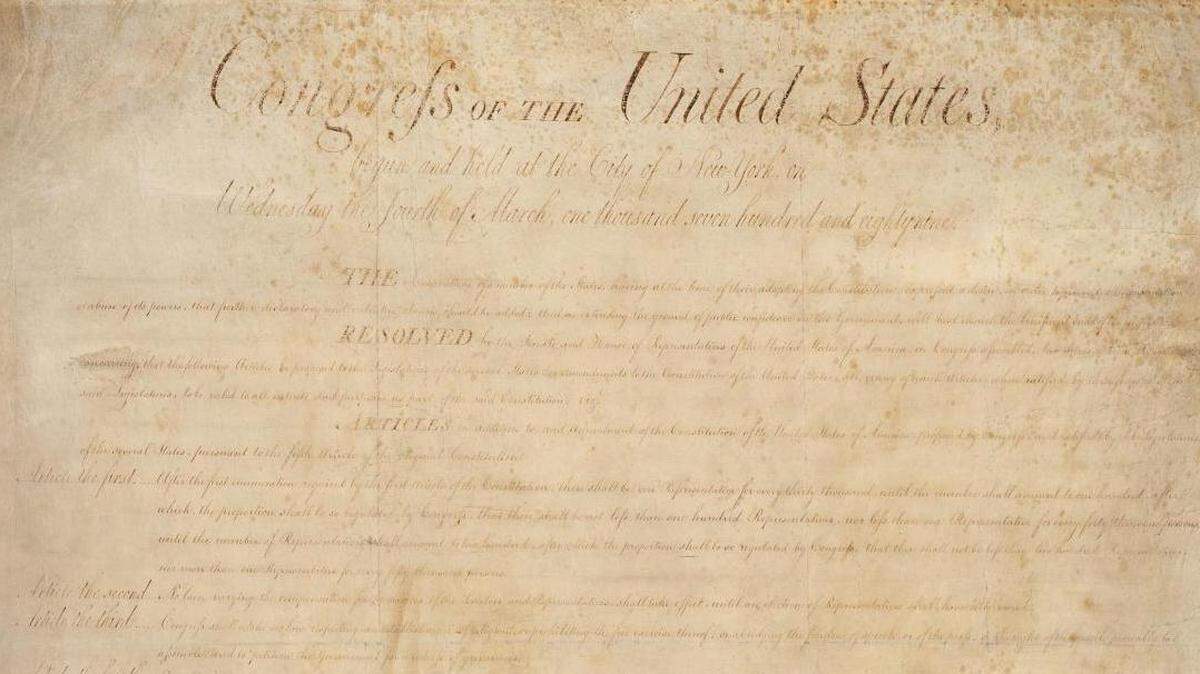 Congreſs OF THE United States,
begun and held at the City of New-York, on
Wednesday the fourth of March, one thousand seven hundred and eighty nine.
THE Conventions of a number of the States, having at the time of their adopting the Constitution, expreſsed a desire, in order to prevent
or abuse of its powers, that further declaratory and restrictive clauses should be added: And as extending the ground of public confidence in the Government, will best ensure the beneficent ends of
RESOLVED by the Senate and House of Representatives of the United States of America, in Congreſs aſsembled, two thirds of
concurring, that the following Articles be proposed to the Legislatures of the several States, as amendments to the Constitution of the United States, all, or any of which Articles, when ratified by
said Legislatures, to be valid to all intents and purposes, as part of the said Constitution; viz.
ARTICLES in addition to, and Amendment of the Constitution of the United States of America, proposed by Congreſs, and ratified by the Legislatures
of the several States, pursuant to the fifth Article of the original Constitution.
Article the first. After the first enumeration required by the first Article of the Constitution, there shall be one Representative for every thirty thousand, until the number shall amount to one hundred, after
which, the proportion shall be so regulated by Congreſs, that there shall be not leſs than one hundred Representatives, nor leſs than one Representative for every forty thousand persons,
until the number of Representatives shall amount to two hundred, after which the proportion shall be so regulated by Congreſs, that there shall not be leſs than two hundred Representatives,
nor more than one Representative for every fifty thousand persons.
Article the second. No law, varying the compensation for the services of the Senators and Representatives, shall take effect, until an election of Representatives shall have intervened.
Article the third. Congreſs shall make no law respecting an establishment of religion, or prohibiting the free exercise thereof; or abridging the freedom of speech, or of the preſs; or the right of the people peaceably to
aſsemble, and to petition the Government for a redreſs of grievances.